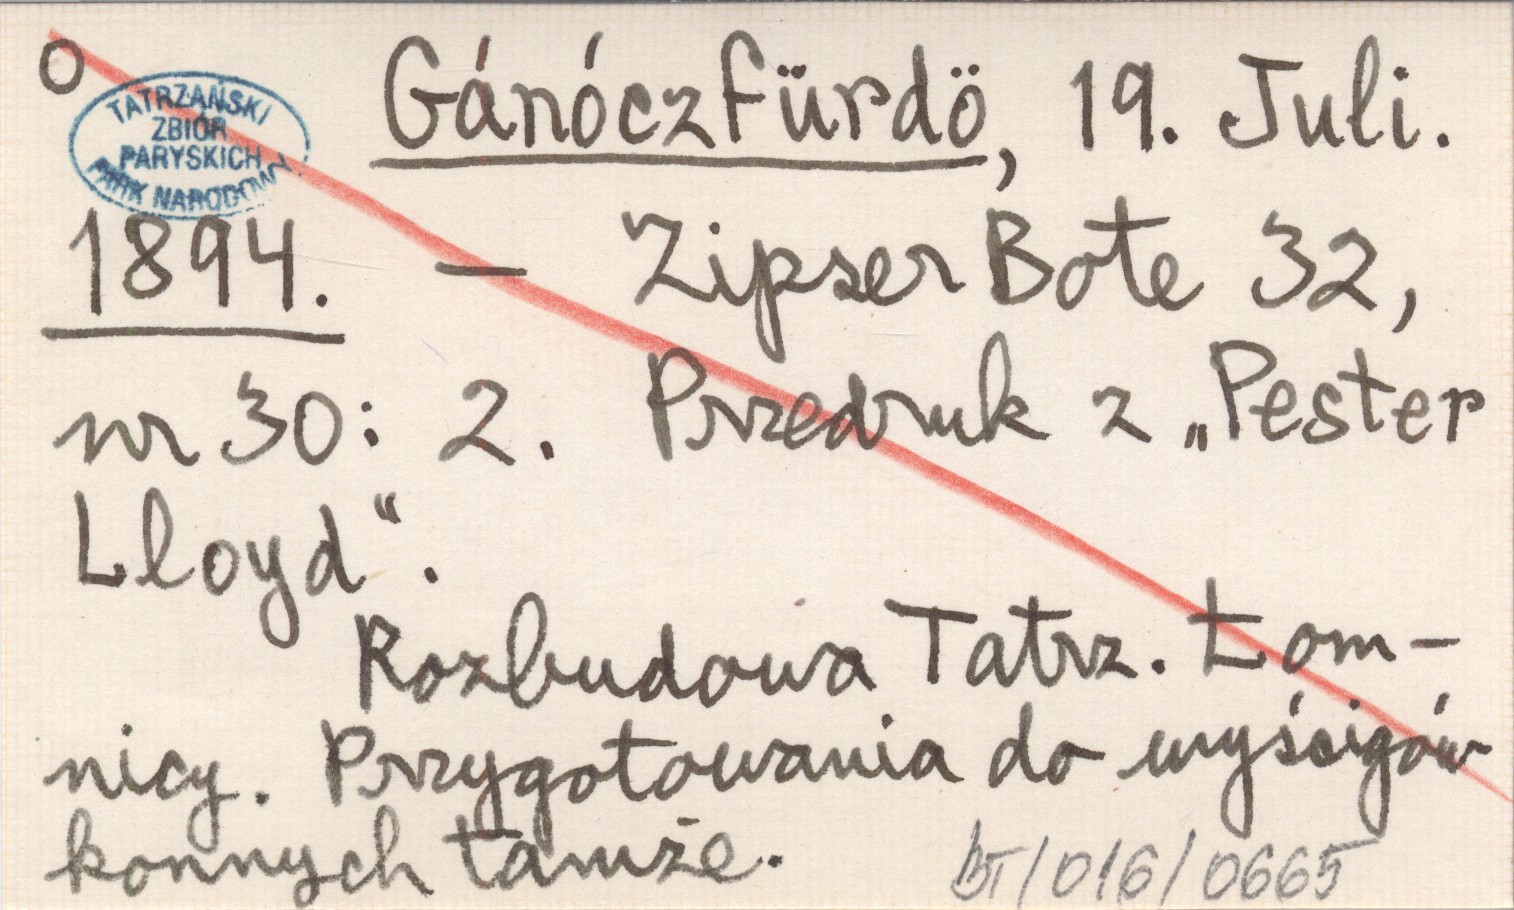 O
TATRZAŃSKI
ZBIÓR
PARYSKICH
PARK NARODOWY
Gánóczfürdö, 19. Juli.
1894. — Zipser Bote 32,
nr 30: 2. Przedruk z „Pester
Lloyd“.
Rozbudowa Tatrz. Łom-
nicy. Przygotowania do wyścigów
konnych tamże.
bT/016/0665